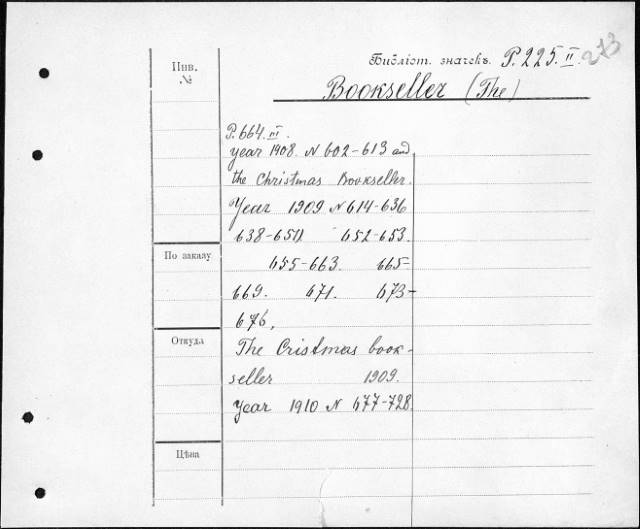 Инв.
№
Библіот. значекъ. P. 225. II. 273
Bookseller (The)
P. 664. III.
year 1908. N 602-613 and
the Christmas Bookseller.
Year 1909. N 614-636
638-651 652-653.
655-663. 665-
По заказу
669. 671. 673-
676,
Откуда
The Cristmas book-
seller 1909.
Year 1910 N 677-728.
Цѣна